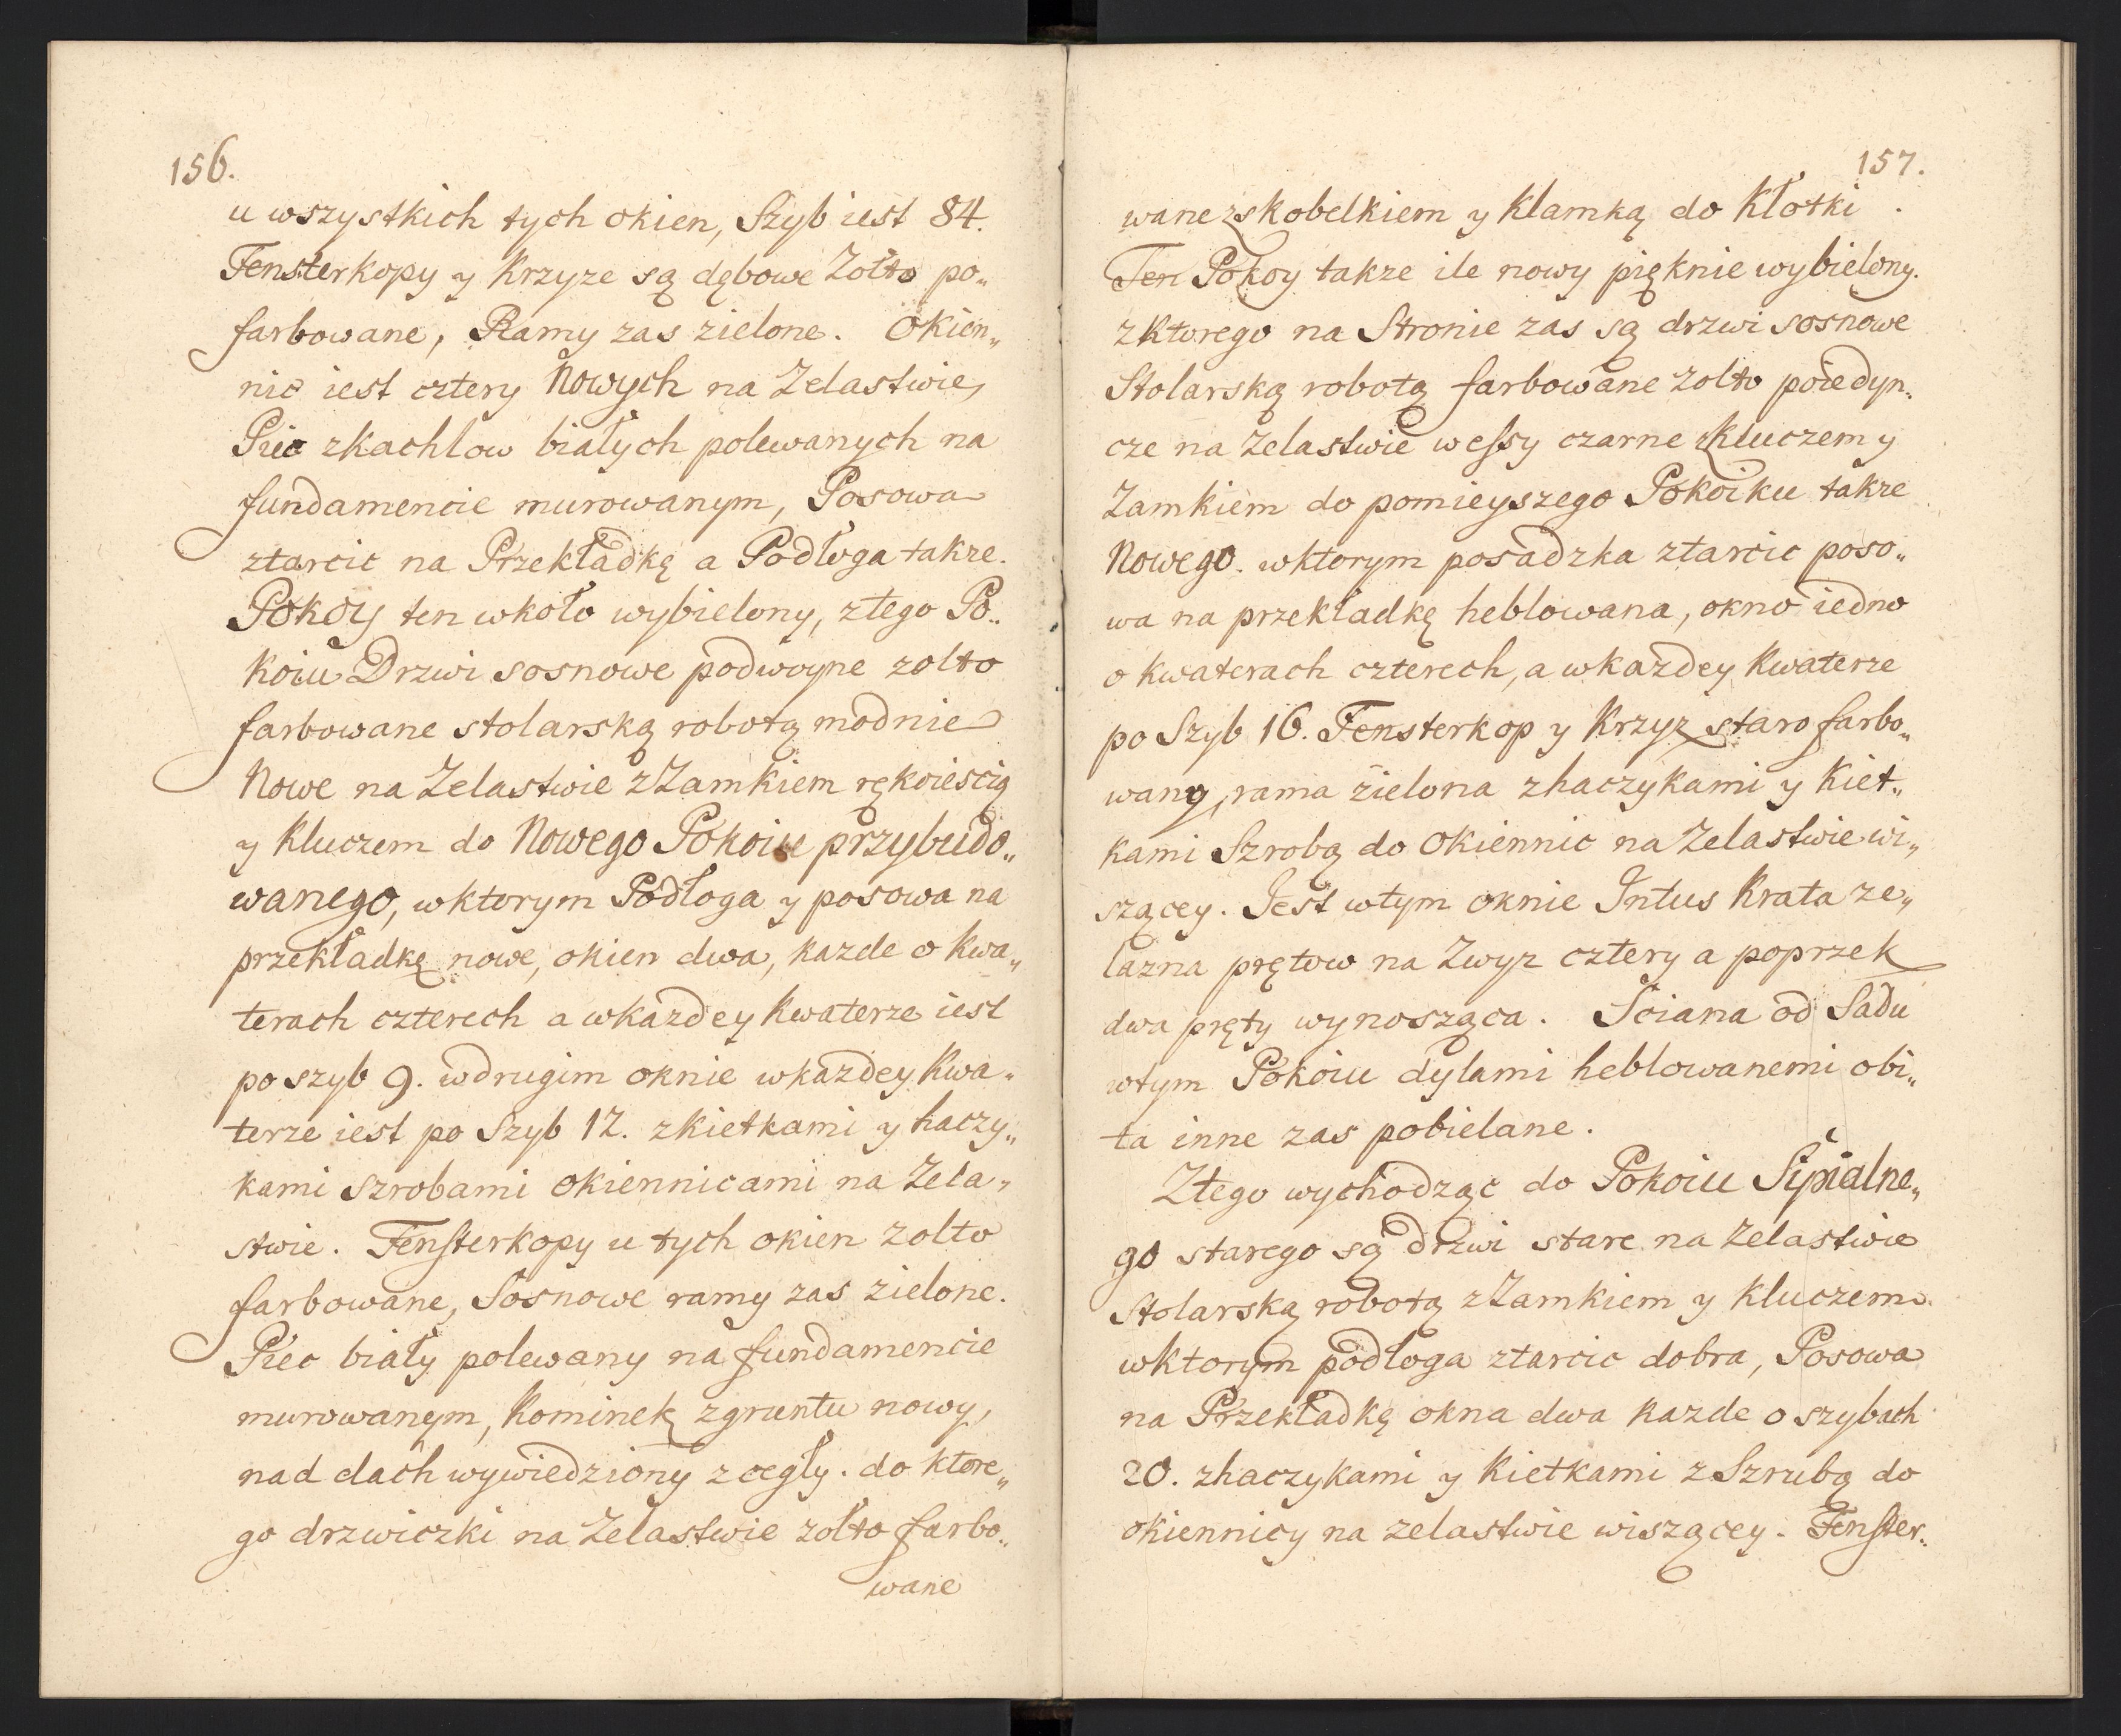 156.
u wszystkich tych okien, Szyb iest 84.
Fensterkopy y Krzyze są dębowe Zołto po„
farbowane, Ramy zas zielone. Okien„
nic iest cztery Nowych na Zelastwie,
Piec zkachlow białych polewanych na
fundamencie murowanym, Posowa
ztarcic na Przekładkę a Podłoga takze.
Pokoy ten wkoło wybielony, ztego Po„
koiu Drzwi sosnowe podwoyne zolto
farbowane stolarską robotą modnie
Nowe na Zelastwie zZamkiem rękoieścią
y Kluczem do Nowego Pokoiu przybudo„
wanego, wktorym Podłoga y posowa na
przekładkę nowe, okien dwa, kazde o kwa„
terach czterech a wkazdey kwaterze iest
po szyb 9. wdrugim oknie wkazdey Kwa„
terze iest po Szyb 12. zkietkami y haczy„
kami szrobami okiennicami na Zela„
stwie. Fensterkopy u tych okien zolto
farbowane, Sosnowe ramy zas zielone.
Piec biały polewany na fundamencie
murowanym, Kominek zgruntu nowy,
nad dach wywiedziony z cegły. do ktore„
go drzwiczki na Zelastwie zolto farbo„
wane
157.
wane zskobelkiem y Klamką do Kłotki.
Ten Pokoy takze ile nowy pięknie wybielony.
zktorego na Stronie zas są drzwi sosnowe
Stolarską robotą farbowane zolto poiedyn„
cze na Zelastwie wessy czarne zKluczem y
Zamkiem do pomieyszego Pokoiku takze
Nowego. wktorym posadzka ztarcic poso„
wa na przekładkę heblowana, okno iedno
o kwaterach czterech, a wkazdey Kwaterze
po Szyb 16. Fensterkop y Krzyz staro farbo„
wany, rama zielona zhaczykami y Kiet„
kami Szrobą do Okiennic na Zelastwie wi„
szącey. Jest wtym oknie Intus Krata ze„
lazna prętow na Zwyz cztery a poprzek
dwa pręty wynosząca. Sciana od Sadu
wtym Pokoiu dylami heblowanemi obi„
ta inne zas pobielane.
Ztego wychodząc do Pokoiu Sypialne„
go starego są drzwi stare na Zelastwie
Stolarską robotą zZamkiem y Kluczem.
wktorym podłoga ztarcic dobra, Posowa
na Przekładkę okna dwa kazde o szybach
20. zhaczykami y Kietkami z Szrubą do
okiennicy na zelastwie wiszącey. Fenster„